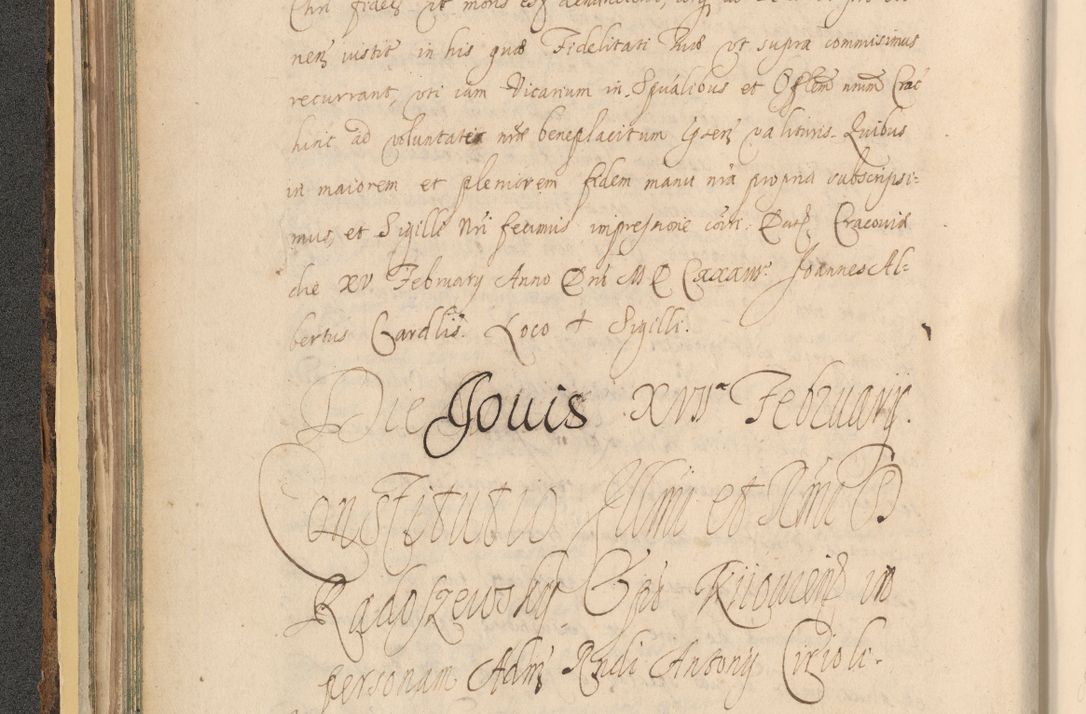 nem iustit in his quæ Fidelitati Tuæ ut supra commisimus
recurrant, uti iam Vicarium in Spũalibus et Offlem nrum Crac
hinc ad voluntatis nræ beneplacitum valituris. Quibus
in maiorem et pleniorem fidem manu nrã propria subscripsi=
mus, et Sigilli Nri fecimus impressione coiri. Dat Cracoviæ
die XV. February Anno Dni M D Joannes Al=
bertus Cardlis. Loco + Sigilli.
Die Jouis XVIa February.
Constitutio Illmi et Rmi D
Radoszewsky Epi Kiiovien in
personam Adm Rndi Antony Cirioli.